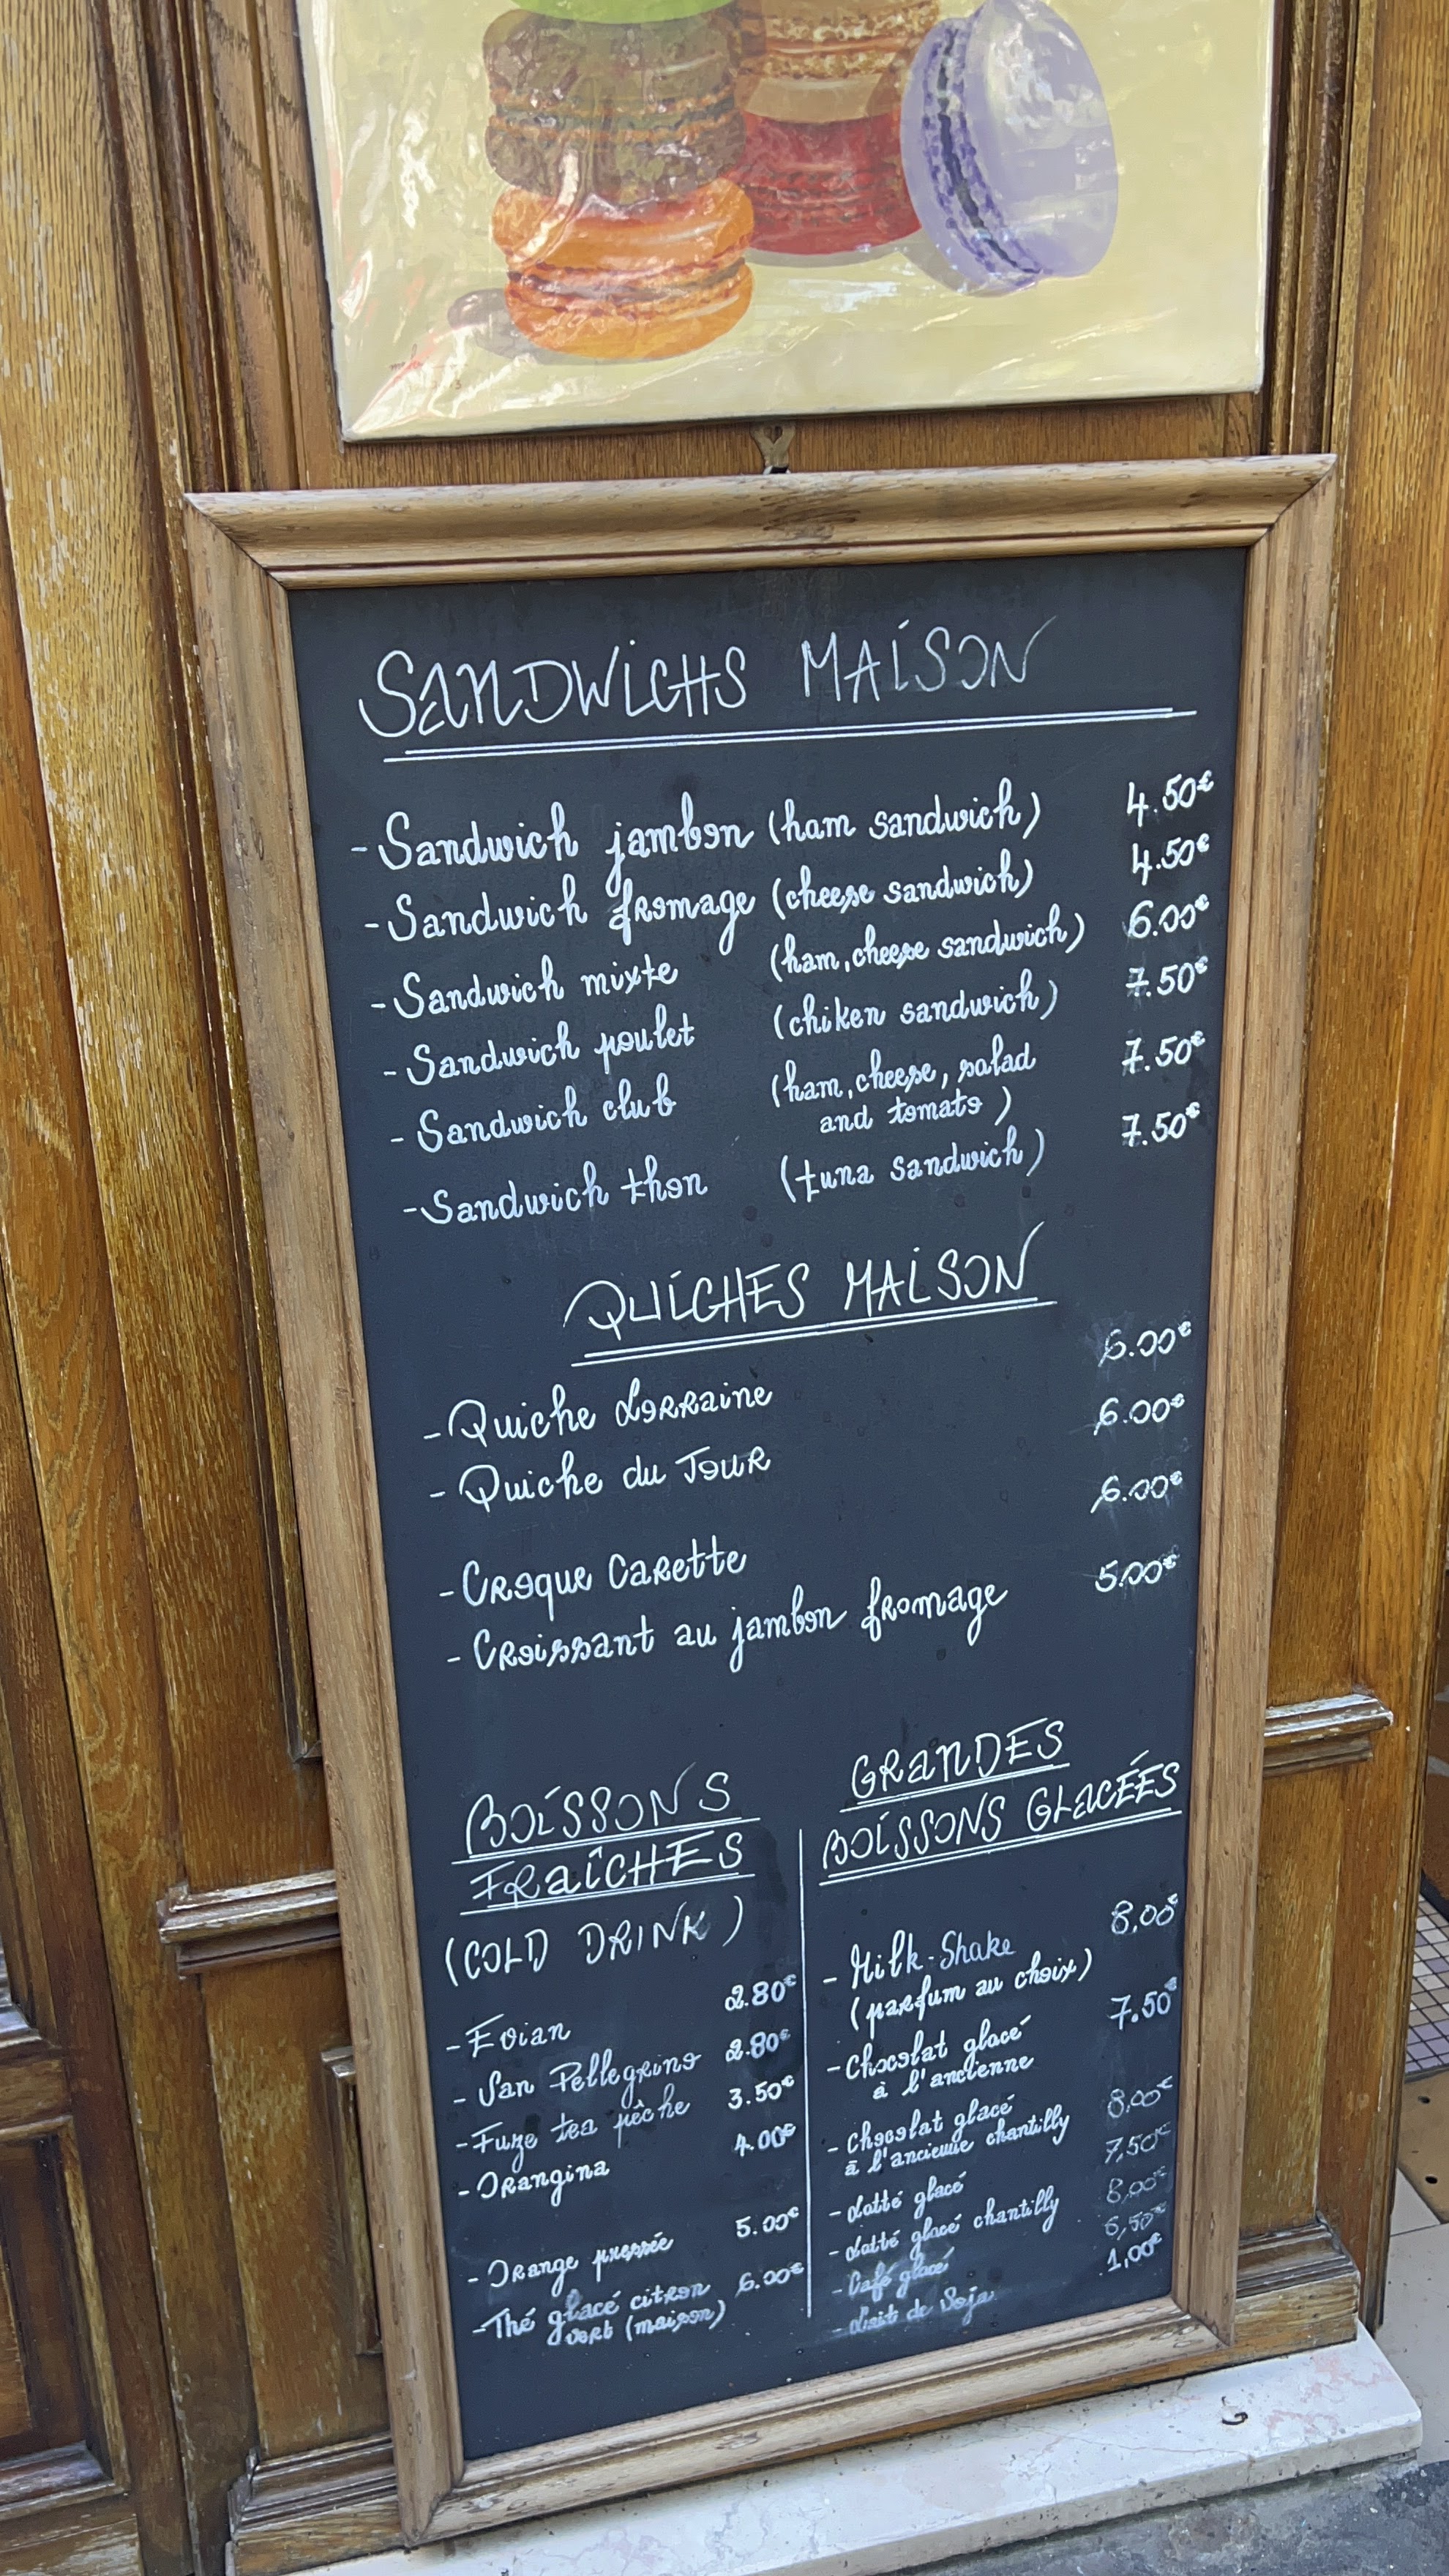 SANDWICHS MAISON
- Sandwich jambon (ham sandwich) 4.50€
- Sandwich fromage (cheese sandwich) 4.50€
- Sandwich mixte (ham, cheese sandwich) 6.00€
- Sandwich poulet (chiken sandwich) 7.50€
- Sandwich club (ham, cheese, salad 7.50€
and tomato)
- Sandwich thon (tuna sandwich) 7.50€
QUICHES MAISON
- Quiche Lorraine 6.00€
- Quiche du Jour 6.00€
- Croque Carette 6.00€
- Croissant au jambon fromage 5.00€
BOISSONS
FRAÎCHES
(COLD DRINK)
- Evian 2.80€
- San Pellegrino 2.80€
- Fuze tea pêche 3.50€
- Orangina 4.00€
- Orange pressée 5.00€
- Thé glacé citron 6.00€
vert (maison)
GRANDES
BOISSONS GLACÉES
- Milk-Shake 8,00€
(parfum au choix)
- Chocolat glacé 7.50€
à l'ancienne
- Chocolat glacé 8,00€
à l'ancienne chantilly
- Latté glacé 7,50€
- Latté glacé chantilly 8,00€
- Café glacé 6,50€
- Lait de Soja 1,00€